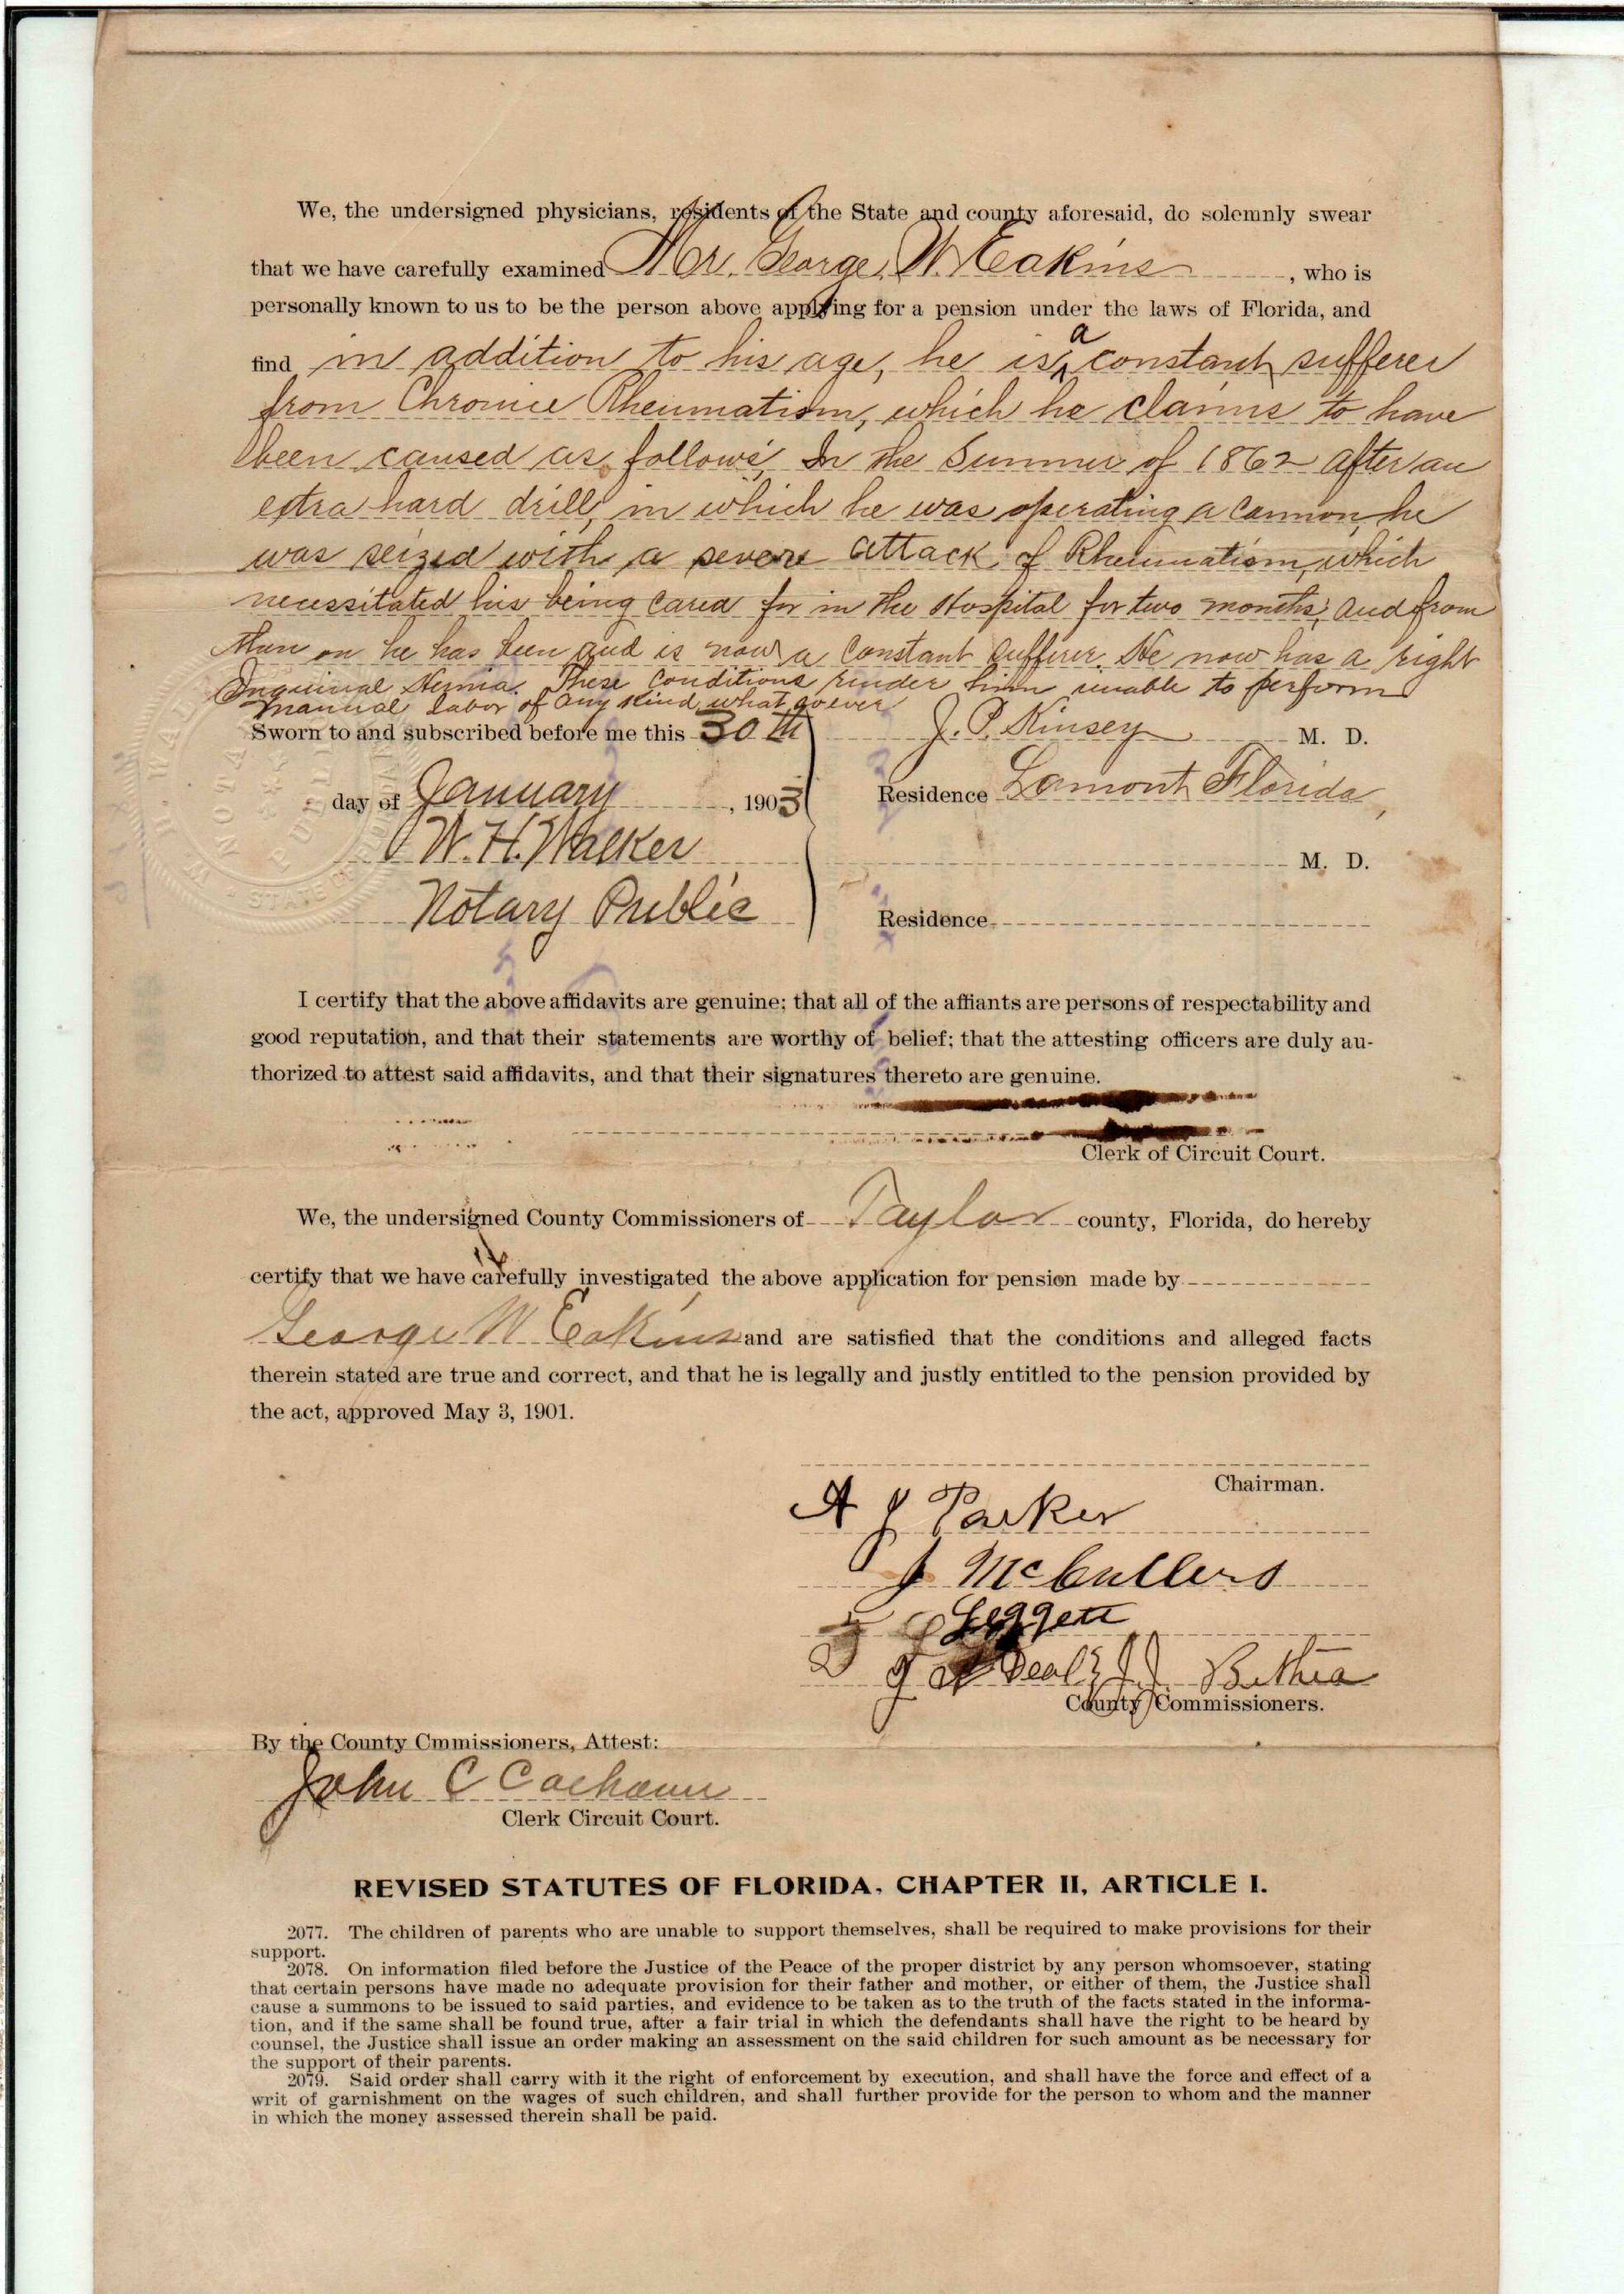 We, the undersigned physicians, residents of the State and county aforesaid, do solemnly swear
that we have carefully examined Mr. George W. Eakins, who is
personally known to us to be the person above applying for a pension under the laws of Florida, and
find in addition to his age, he is a constant sufferer
from Chronic Rheumatism, which he claims to have
been caused as follows, In the Summer of 1862 after an
extra hard drill, in which he was operating a Cannon, he
was seized with a severe attack of Rheumatism, which
necessitated his being cared for in the Hospital for two months, and from
then on he has been and is now a constant sufferer. He now has a right
Inguinal Hernia. These Conditions render him unable to perform
manual labor of any kind whatsoever
Sworn to and subscribed before me this 30th J. P. Kinsey M. D.
day of January, 1903 Residence Lamont, Florida,
W. H. Walker M. D.
Notary Public Residence
I certify that the above affidavits are genuine; that all of the affiants are persons of respectability and
good reputation, and that their statements are worthy of belief; that the attesting officers are duly au-
thorized to attest said affidavits, and that their signatures thereto are genuine.
Clerk of Circuit Court.
We, the undersigned County Commissioners of Taylor county, Florida, do hereby
certify that we have carefully investigated the above application for pension made by
George W Eakins and are satisfied that the conditions and alleged facts
therein stated are true and correct, and that he is legally and justly entitled to the pension provided by
the act, approved May 3, 1901.
Chairman.
A J Parker
J McCullers
Leggett
Deal J J Bethea
County Commissioners.
By the County Cmmissioners, Attest:
John C Calhoun
Clerk Circuit Court.
REVISED STATUTES OF FLORIDA, CHAPTER II, ARTICLE I.
2077. The children of parents who are unable to support themselves, shall be required to make provisions for their
support.
2078. On information filed before the Justice of the Peace of the proper district by any person whomsoever, stating
that certain persons have made no adequate provision for their father and mother, or either of them, the Justice shall
cause a summons to be issued to said parties, and evidence to be taken as to the truth of the facts stated in the informa-
tion, and if the same shall be found true, after a fair trial in which the defendants shall have the right to be heard by
counsel, the Justice shall issue an order making an assessment on the said children for such amount as be necessary for
the support of their parents.
2079. Said order shall carry with it the right of enforcement by execution, and shall have the force and effect of a
writ of garnishment on the wages of such children, and shall further provide for the person to whom and the manner
in which the money assessed therein shall be paid.